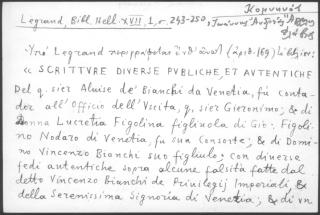 Κομνηνοί
Legrand, Bibl. Hell. XVII, 1, σ. 243-250,
Ὑπὸ Legrand περιγραφεται (ἀριθ. 169)
« SCRITTVRE DIVERSE PVBLICHE, ET AUTENTICHE
Del q. sier Aluise de' Bianchi da Venetia, fù conta-
dor all' Officio dell' Vscita, q. sier Gieronimo; & di
Donna Lucretia Figolina figliuola di Gio: Figoli-
no Nodaro di Venetia, fu sua Consorte; & di Domi-
no Vincenzo Bianchi suo figliulo; con diverse
fedi autentiche sopra alcune falsità fatte dal
detto Vincenzo Bianchi de Priuilegij Imperiali, &
della Serenissima Signoria di Venetia; & di vn